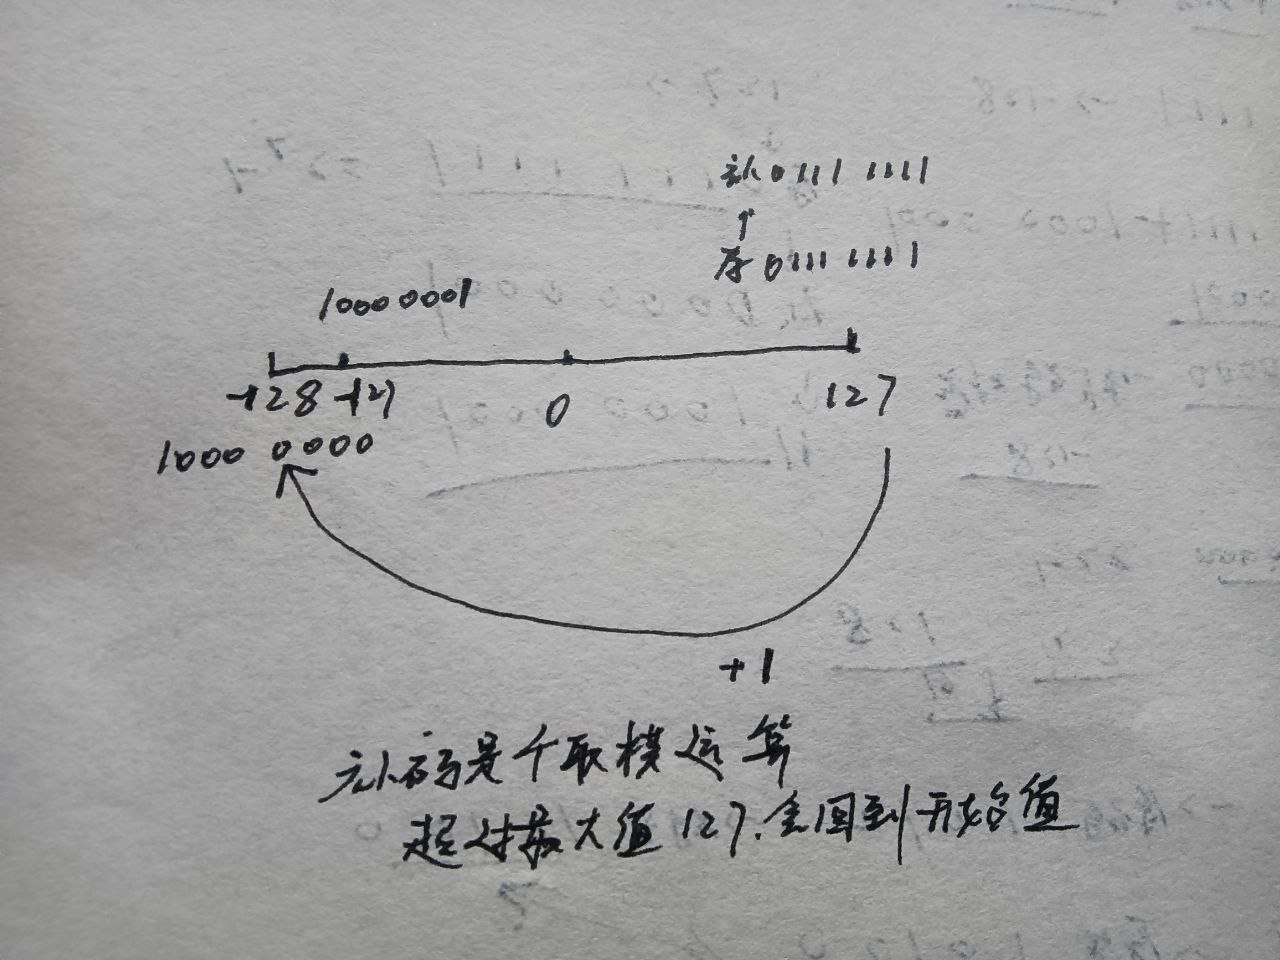 补 0111 1111
↑
原 0111 1111
1000 0001
-128 -127 0 127
1000 0000
+1
补码是个取模运算
超过最大值127.会回到开始值